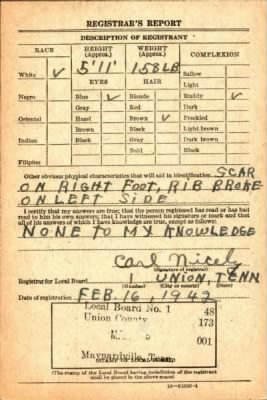 REGISTRAR'S REPORT
DESCRIPTION OF REGISTRANT
RACE HEIGHT (Approx.) WEIGHT (Approx.) COMPLEXION
5'11" 158 LB Sallow
White ✓ EYES HAIR Light
Negro Blue ✓ Blonde Ruddy ✓
Gray Red Dark
Oriental Hazel Brown ✓ Freckled
Brown Black Light brown
Indian Black Gray Dark brown
Bald Black
Filipino
Other obvious physical characteristics that will aid in identification SCAR
ON RIGHT FOOT, RIB BROKE
ON LEFT SIDE
I certify that my answers are true; that the person registered has read or has had
read to him his own answers; that I have witnessed his signature or mark and that
all of his answers of which I have knowledge are true, except as follows:
NONE TO MY KNOWLEDGE
Carl Nicely
(Signature of registrar)
Registrar for Local Board 1 UNION, TENN
(Number) (City or county) (State)
Date of registration FEB. 16, 1942
Local Board No. 1 48
Union County 173
001
Maynardville, Tenn.
(STAMP OF LOCAL BOARD)
(The stamp of the Local Board having jurisdiction of the registrant
shall be placed in the above space.)